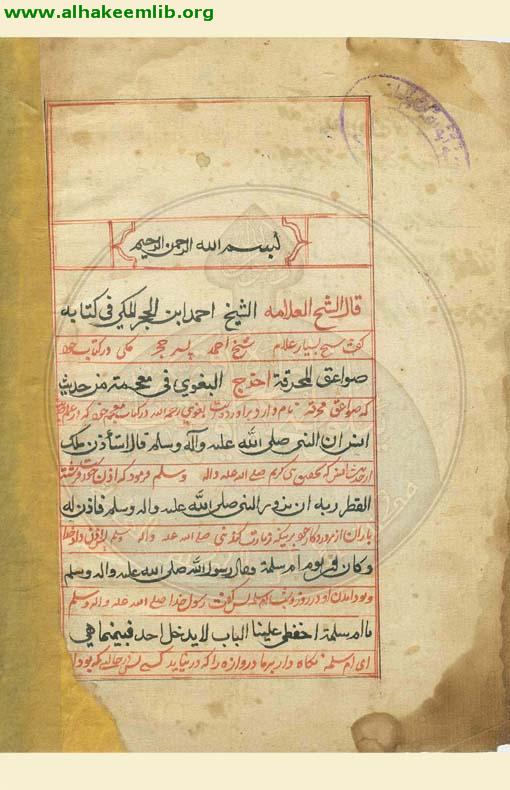 www.alhakeemlib.org
بسم الله الرحمن الرحيم
قال الشيخ العلامه الشيخ احمد ابن الحجر المكي في كتابه
گفت شيخ بسيار علام شيخ احمد پسر حجر مكي در كتاب خود
صواعق المحرقة اخرج البغوي في معجمة من حديث
كه صواعق محرقه نام دارد
انس ان النبي صلى الله عليه وآله وسلم قال استأذن ملك
نبي كريم صلے الله عليه واله وسلم فرمود كه اذن
القطر ربه ان يزور النبي صلى الله عليه واله وسلم فاذن له
باران از پروردگار خود نبي صلے الله عليه واله وسلم پس اذن داد
وكان في يوم ام سلمة وقال رسول الله صلى الله عليه واله وسلم
و بود آمدن او در روز نوبت ام سلمه پس گفت رسول خدا صلے الله عليه واله وسلم
يا ام سلمة احفظي علينا الباب لا يدخل احد فبينما هي
اى ام سلمه نگاه دار بر ما دروازه را كه در نيايد كسے پس در حالے كه بود ا